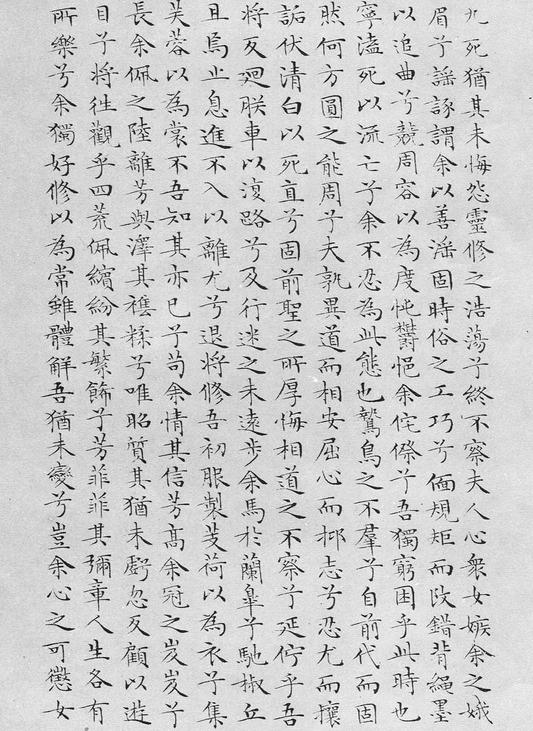 九死猶其未悔怨靈修之浩蕩兮終不察夫人心衆女嫉余之娥
眉兮謡諑謂余以善淫固時俗之工巧兮偭規矩而改錯背繩墨
以追曲兮競周容以為度忳鬱悒余侘傺兮吾獨窮困乎此時也
寧溘死以流亡兮余不忍為此態也鷙鳥之不羣兮自前代而固
然何方圓之能周兮夫孰異道而相安屈心而抑志兮忍尤而攘
詬伏清白以死直兮固前聖之所厚悔相道之不察兮延佇乎吾
將反廻朕車以復路兮及行迷之未遠步余馬於蘭臯兮馳椒丘
且焉止息進不入以離尤兮退將修吾初服製芰荷以為衣兮集
芙蓉以為裳不吾知其亦已兮苟余情其信芳高余冠之岌岌兮
長余佩之陸離芳與澤其襍糅兮唯昭質其猶未虧忽反顧以遊
目兮將往觀乎四荒佩繽紛其繁飾兮芳菲菲其彌章人生各有
所樂兮余獨好修以為常雖體解吾猶未變兮豈余心之可懲女